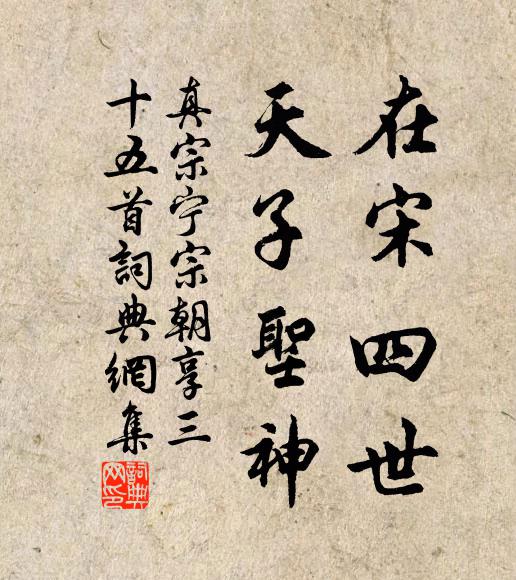 在宋四世
天子聖神
真宗宁宗朝享三
十五首詞典網集
詞典网印